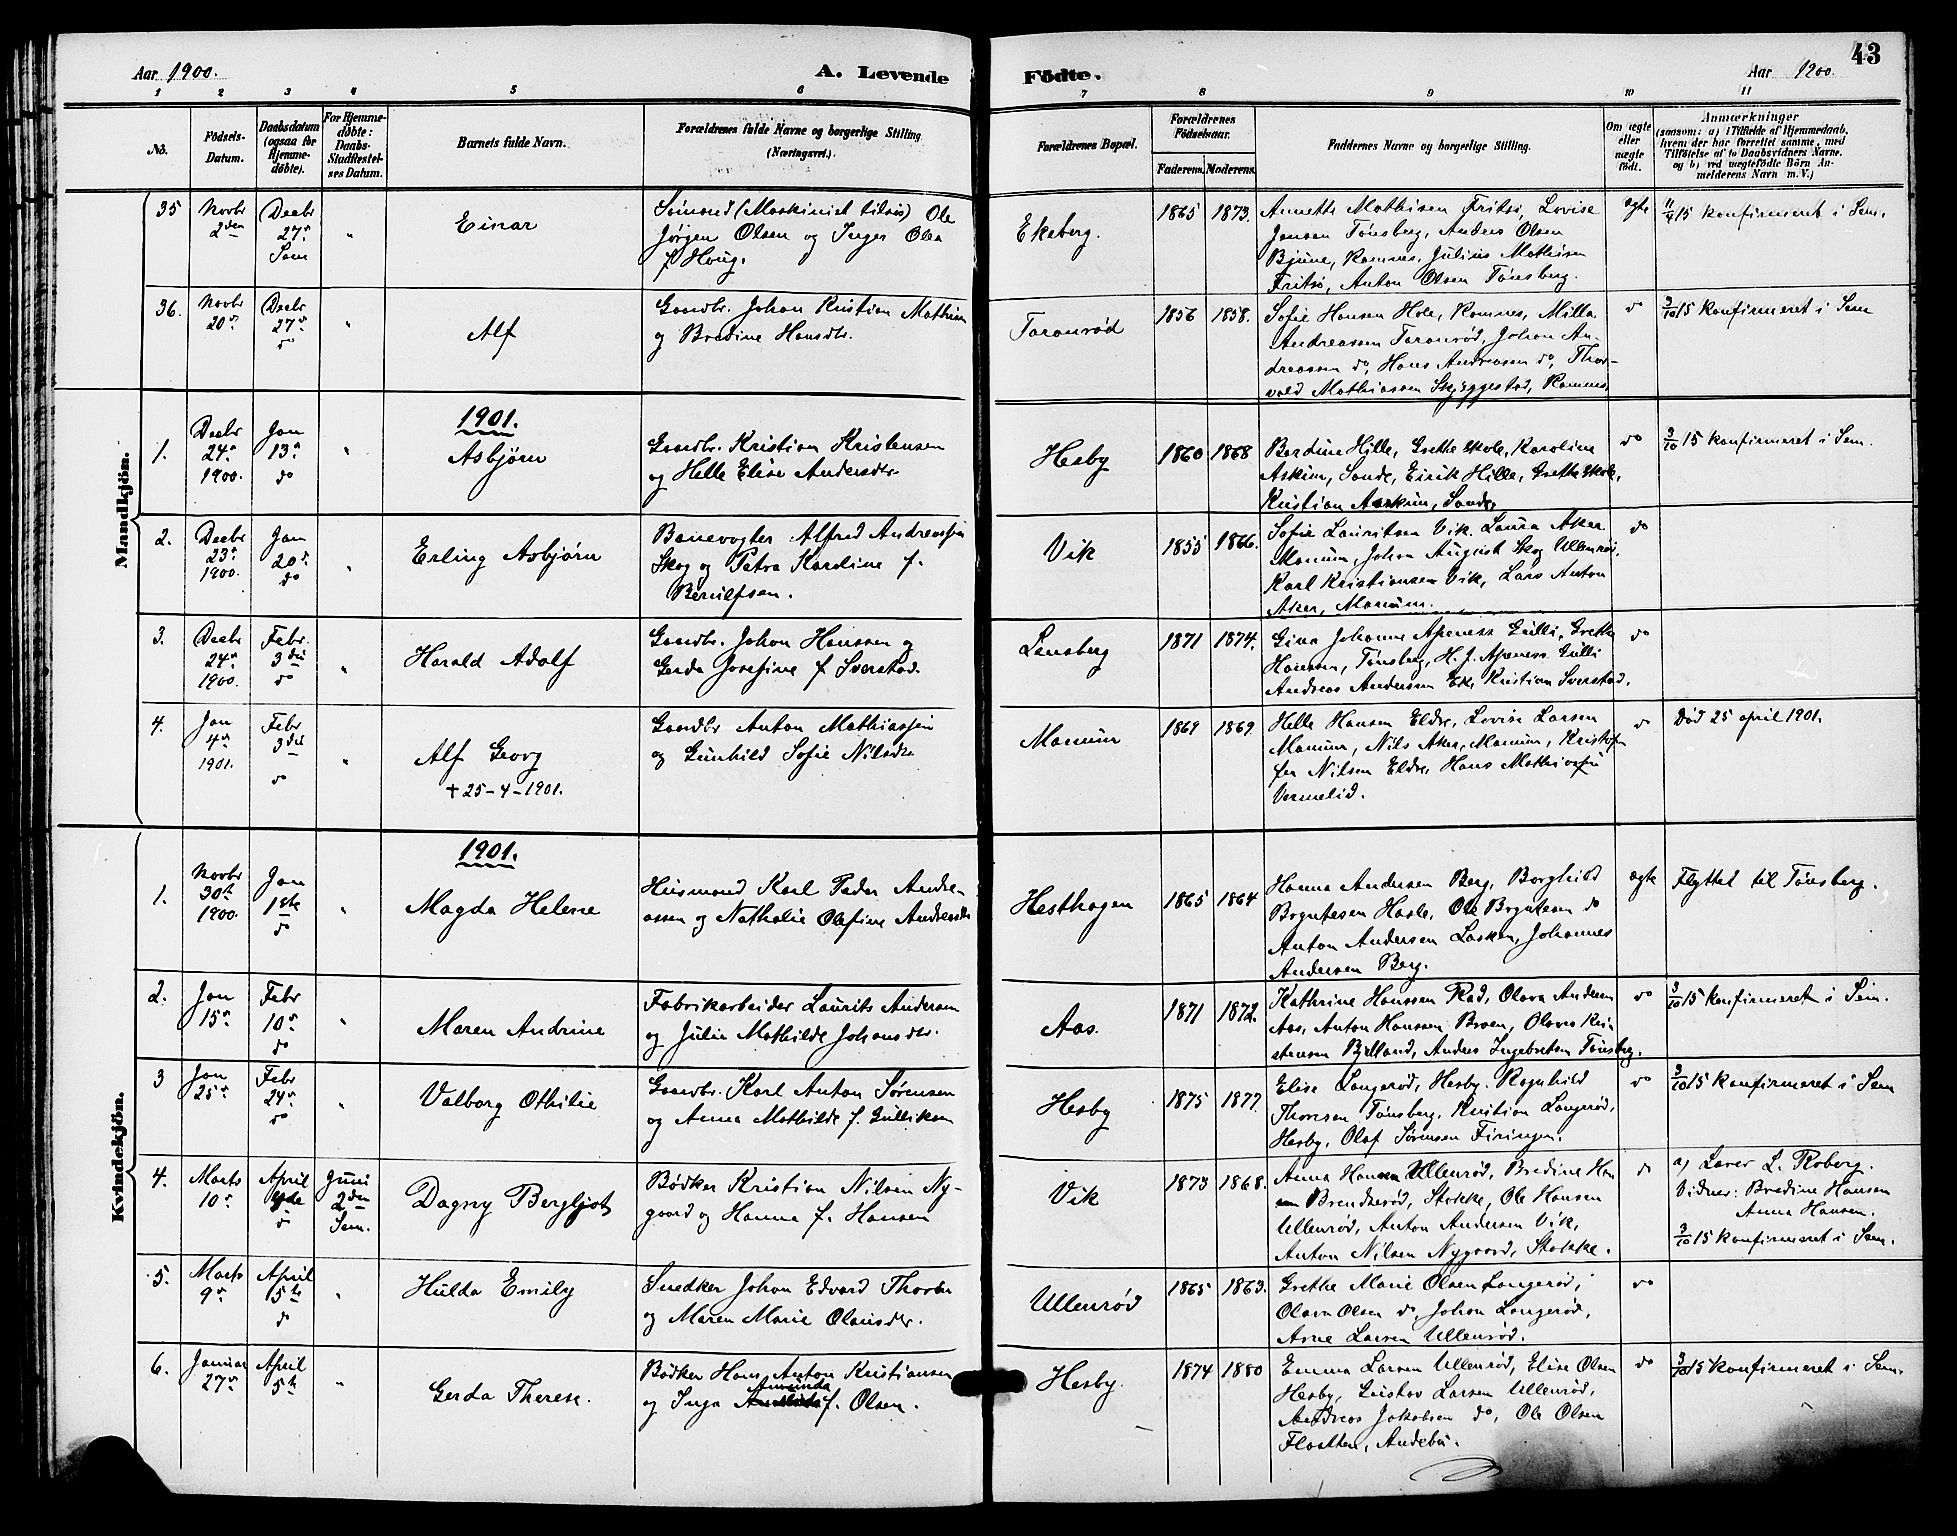 43
Aar 1900.
A. Levende Födte.
Aar 1900.
1 2 3 4 5 6 7 8 9 10 11
No.
Födsels-Datum.
Daabsdatum (ogsaa for Hjemme-døbte).
For Hjemme-døbte: Daabs-Stadfæstel-ses Datum.
Barnets fulde Navn.
Forældrenes fulde Navne og borgerlige Stilling. (Næringsvei.)
Forældrenes Bopæl.
Forældrenes Födselsaar.
Faderens. Moderens.
Faddernes Navne og borgerlige Stilling.
Om ægte eller uægte født.
Anmærkninger
(saasom: a) i Tilfælde af Hjemmedaab,
hvem der har forrettet samme, med
Tilföielse af to Daabsvidners Navne,
og b) ved uægtefödte Børn An-
melderens Navn m. V.)
35 Novbr 2den Decbr 27de Sem " Einar
Sömand (Maskinist tilsös) Ole
Jørgen Olsen og Inger Olea
f. Houg.
Ekeberg. 1865 1873.
Annette Mathisen Fritsö, Lovise
Jensen Tönsberg, Anders Olsen
Bjune, Ramnes, Julius Mathisen
Fritsö, Anton Olsen Tönsberg.
ægte 11/4 15 konfirmeret i Sem.
36. Novbr 20de Decbr 27de do " Alf
Gaardbr. Johan Kristian Mathisen
og Bredine Hansdtr.
Taranrød 1856 1858.
Sofie Hansen Hole, Ramnes, Milla
Andreassen Taranrød, Johan An-
dreassen do, Hans Andreassen do, Thor-
vald Mathiassen Skjeggestad, Ramnes.
do 3/10 15 konfirmeret i Sem
Mandkjön.
1901.
1. Decbr 24de 1900. Jan 13de do " Asbjørn
Gaardbr. Kristian Kristensen
og Helle Elise Andersdtr
Hesby 1860 1868
Berdine Hille, Grethe Skole, Karoline
Askim, Sande, Eirik Hille, Grethe Skole,
Kristian Askim, Sande.
do 3/10 15 konfirmeret i Sem.
2. Decbr 23de 1900. Jan 20de do " Erling Asbjørn
Banevogter Alfred Andreassen
Skog og Petra Karoline f.
Berulfsen.
Vik 1855 1866.
Sofie Lauritsen Vik, Laura Aker
Manum, Johan August Skog Ullenrød,
Karl Kristiansen Vik, Lars Anton
Aker, Manum.
do
3. Decbr 24de 1900. Febr. 3die do " Harald Adolf
Gaardbr. Johan Hanssen og
Gerda Josefine f. Sverstad.
Lensberg 1871 1874.
Gina Johanne Apeness Gulli, Grethe
Hanssen, Tönsberg, H. J. Apeness Gulli
Andreas Andersen Eke, Kristian Sverstad.
do
4. Jan 4de 1901. Febr 3die do " Alf Georg
+ 25-4-1901.
Gaardbr Anton Mathiassen
og Gunhild Sofie Nilsdtr
Manum 1869 1869.
Helle Hansen Eldre, Lovise Larsen
Manum, Nils Aker, Manum, Kristof-
fer Nilsen Eldre, Hans Mathiassen
Vermelid.
do Död 25 april 1901.
Kvindekjön.
1901.
1. Novbr 30te 1900 Jan 1ste do " Magda Helene
Husmand Karl Peder Andre-
assen og Nathalie Olefine Andreasdtr
Hesthagen 1865 1864
Hanna Andersen Berg, Borghild
Bryntesen Hasle, Ole Bryntesen do
Anton Andersen Lasken, Johannes
Andersen Berg.
ægte Flyttet til Tönsberg.
2. Jan 15de Febr 10de do " Maren Andrine
Fabrikarbeider Laurits Andersen
og Julie Mathilde Johansdtr.
Aas. 1871 1872.
Kathrine Hanssen Rad, Olava Andersen
Aas, Anton Hanssen Braen, Olaves Kri-
stensen Bjelland, Anders Ingebretsen Tönsberg.
do 3/10 15 konfirmeret i Sem.
3 Jan 25de Febr 24de do " Valborg Othilie
Gaardbr. Karl Anton Sørensen
og Anna Mathilde f. Gulliksen
Hesby 1875 1877.
Elise Langerød, Hesby. Ragnhild
Thoresen Tönsberg, Kristian Langerød,
Hesby, Olaf Sørensen Firingen.
do 3/10 15 konfirmeret i Sem
4. Marts 10de April 4de do Juni 2den Sem. Dagny Bergljot
Bødker Kristian Nilsen Ny-
gaard og Hanna f. Hansen
Vik 1873 1868.
Anna Hansen Ullenrød, Bredine Han-
sen Brendsrød, Stokke, Ole Hansen
Ullenrød, Anton Andersen Vik,
Anton Nilsen Nygaard, Stokke.
do a) Lærer L. Roberg.
Vidner: Bredine Hansen
Anna Hansen.
3/10 15 konfirmeret i Sem.
5. Marts 9de April 5te do " Hulda Emily
Snedker Johan Edvard Thorsen
og Maren Marie Olausdtr.
Ullenrød 1865 1863.
Grethe Marie Olsen Langerød,
Olava Olsen do, Johan Langerød,
Arne Larsen Ullenrød.
do
6. Januar 27de April 5te " Gerda Therese.
Bødker Hans Anton Kristiansen
og Inga Amunda f. Olsen.
Hesby. 1874 1880
Emma Larsen Ullenrød, Elise Olsen
Hesby, Gustav Larsen Ullenrød,
Andreas Jakobsen do, Ole Olsen
Flaatten, Andebu.
do 3/10 15 konfirmeret i Sem.